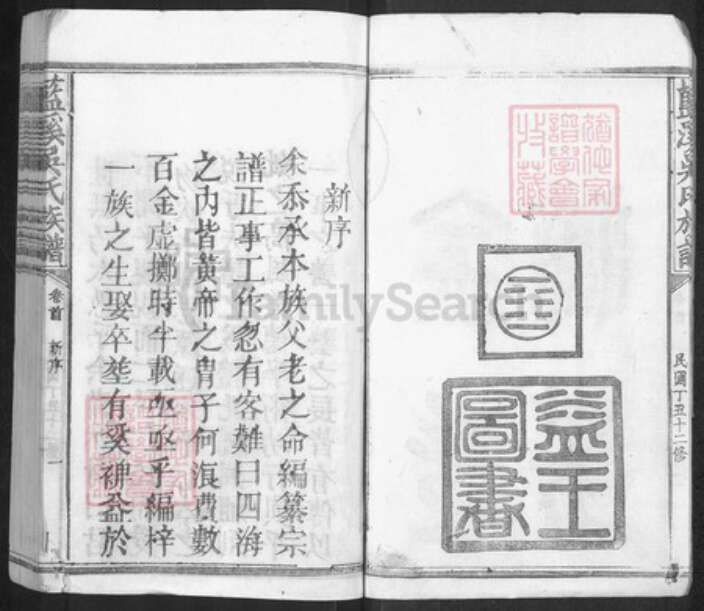 藍溪吳氏族譜
民國丁丑十二修
益王
圖書
猶他家
譜學會
收藏
新序
余忝承本族父老之命編纂宗
譜正事工作忽有客難曰四海
之內皆黃帝之胄子何浪費數
百金虛擲時半載亟亟乎編梓
一族之生娶卒塟有奚裨益於
藍溪吳氏族譜
卷首
新序
一
FamilySearch